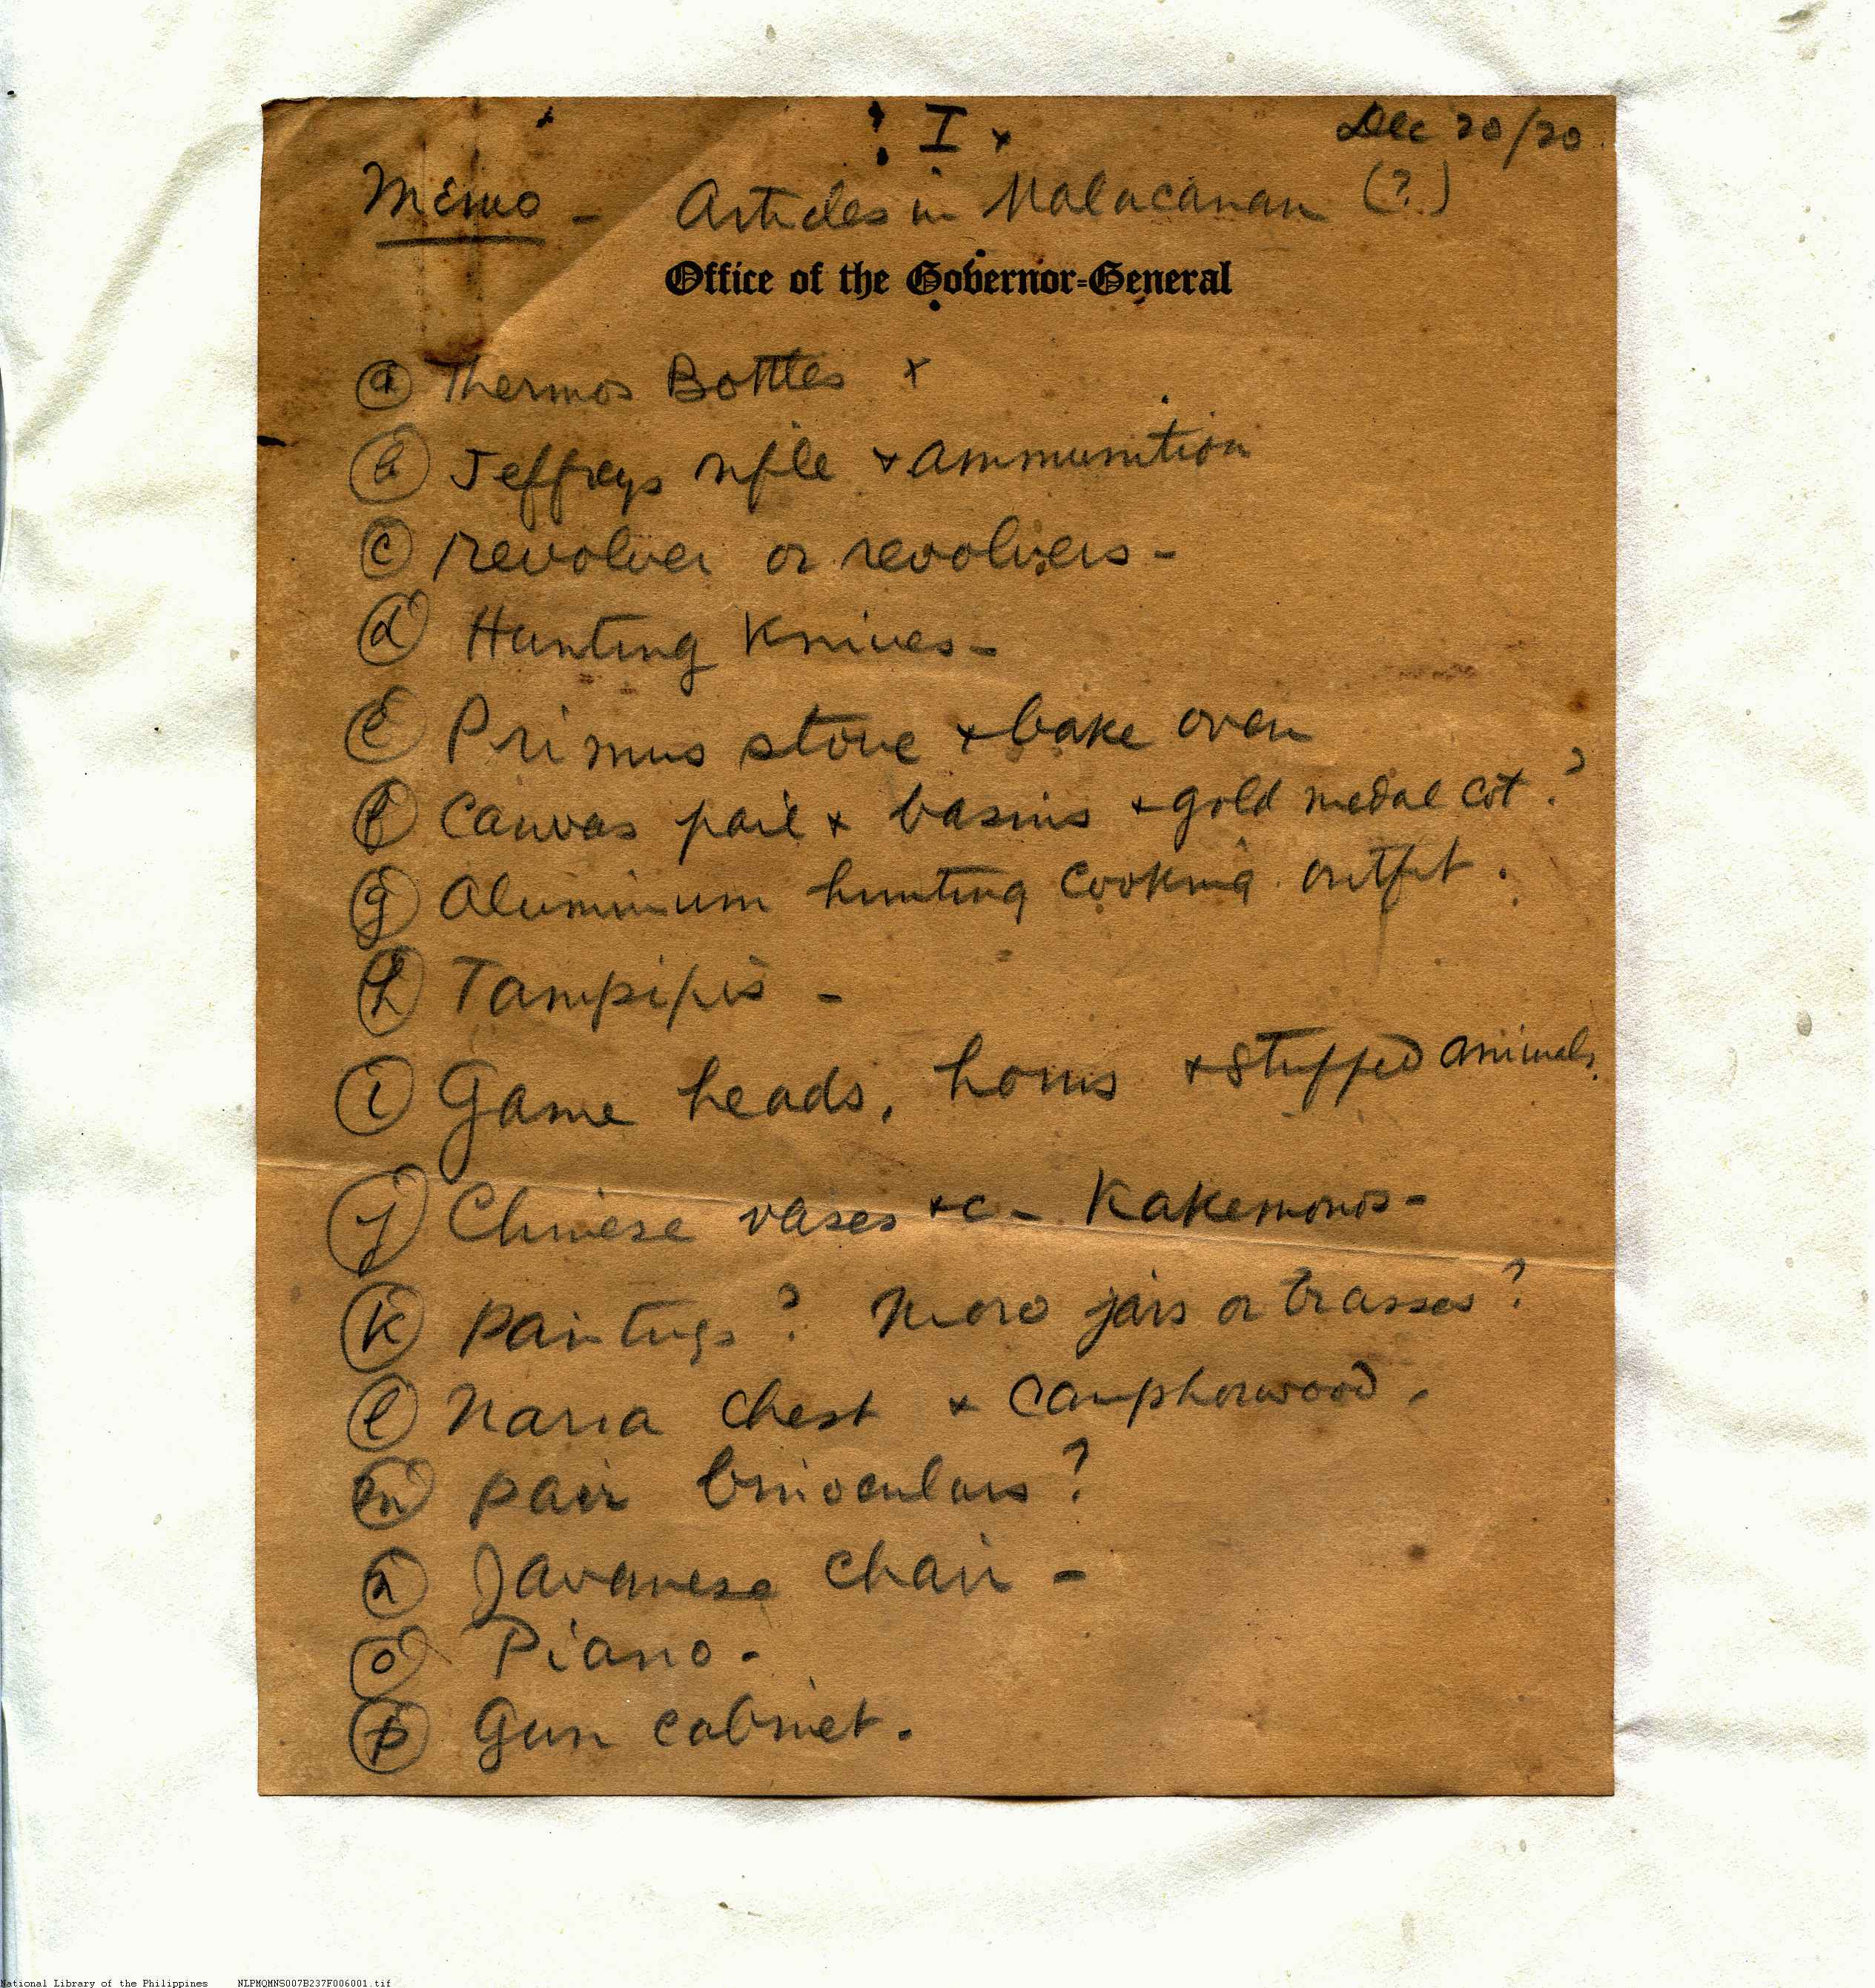 I x
Dec 20/20
Memo - Articles in Malacanan (?)
Office of the Governor-General
a Thermos Bottles x
b Jeffreys rifle + ammunition
c revolver or revolvers -
d Hunting Knives -
e Primus stove + bake oven
f Canvas pail + basins + gold medal cot ?
g Aluminium hunting cooking outfit .
h Tampipis -
i Game heads, horns + stuffed animals.
j Chinese vases +c - Kakemonos -
k paintings ? Moro jars or brasses ?
l Narra chest + Camphorwood .
m pair binoculars ?
n Javanese chair -
o Piano .
p Gun cabinet .
National Library of the Philippines NLPMQMNS007B237F006001.tif